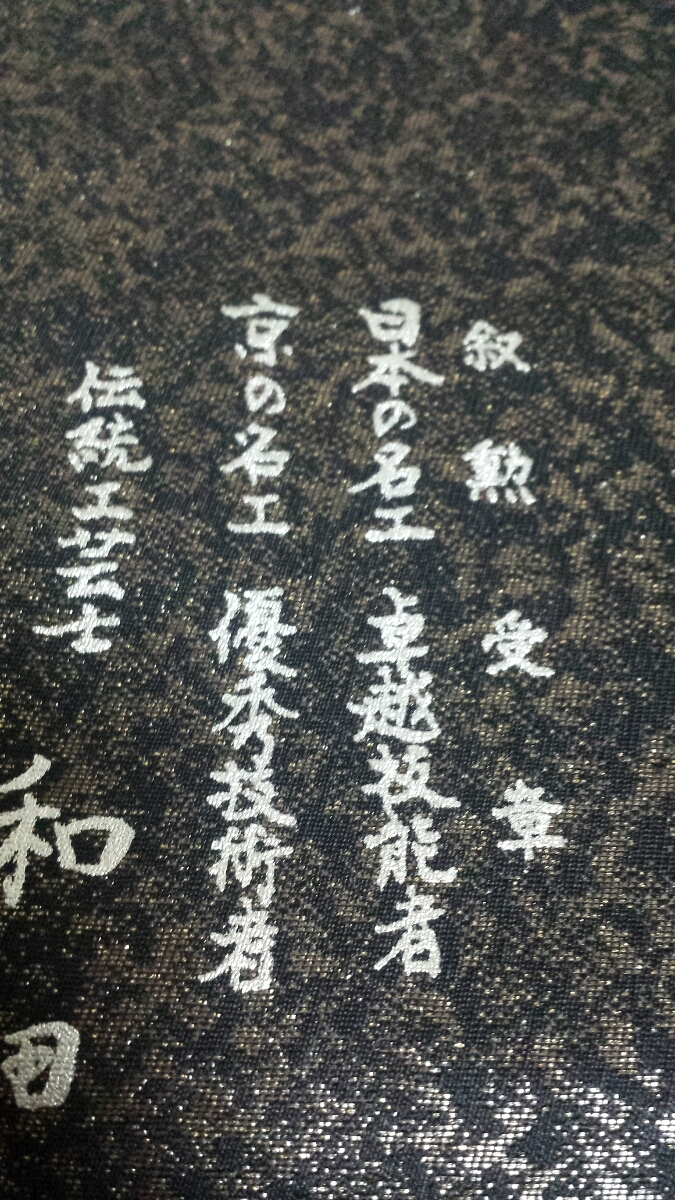 叙勲受章
日本の名工 卓越技能者
京の名工 優秀技術者
伝統工芸士
和田